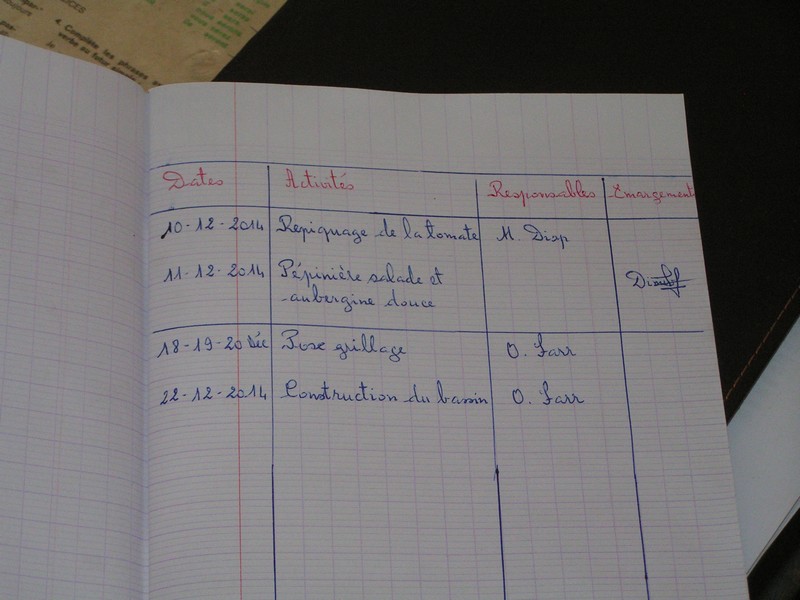 4. Complète les phrases
verbe au futur
Dates Activités Responsables Émargement
10-12-2014 Repiquage de la tomate M. Diop
11-12-2014 Pépinière salade et
aubergine douce
18-19-20 Déc Pose grillage O. Sarr
22-12-2014 Construction du bassin O. Sarr